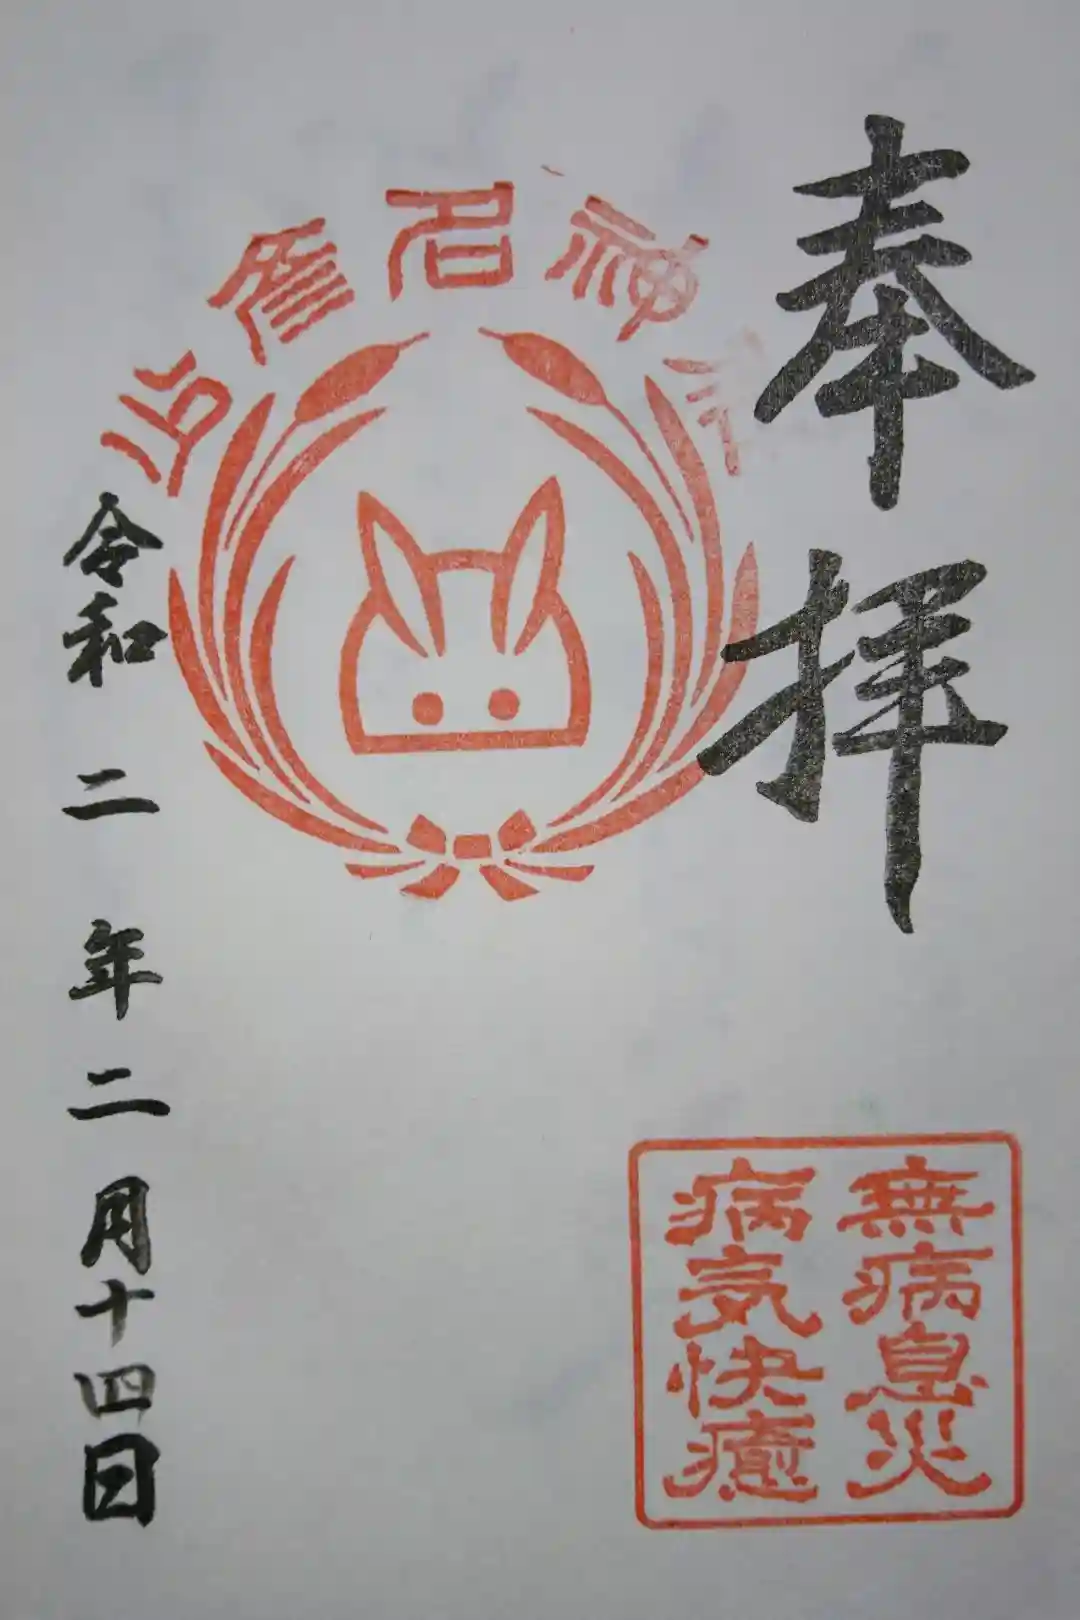 奉拝
無病息災
病気快癒
令和二年二月十四日